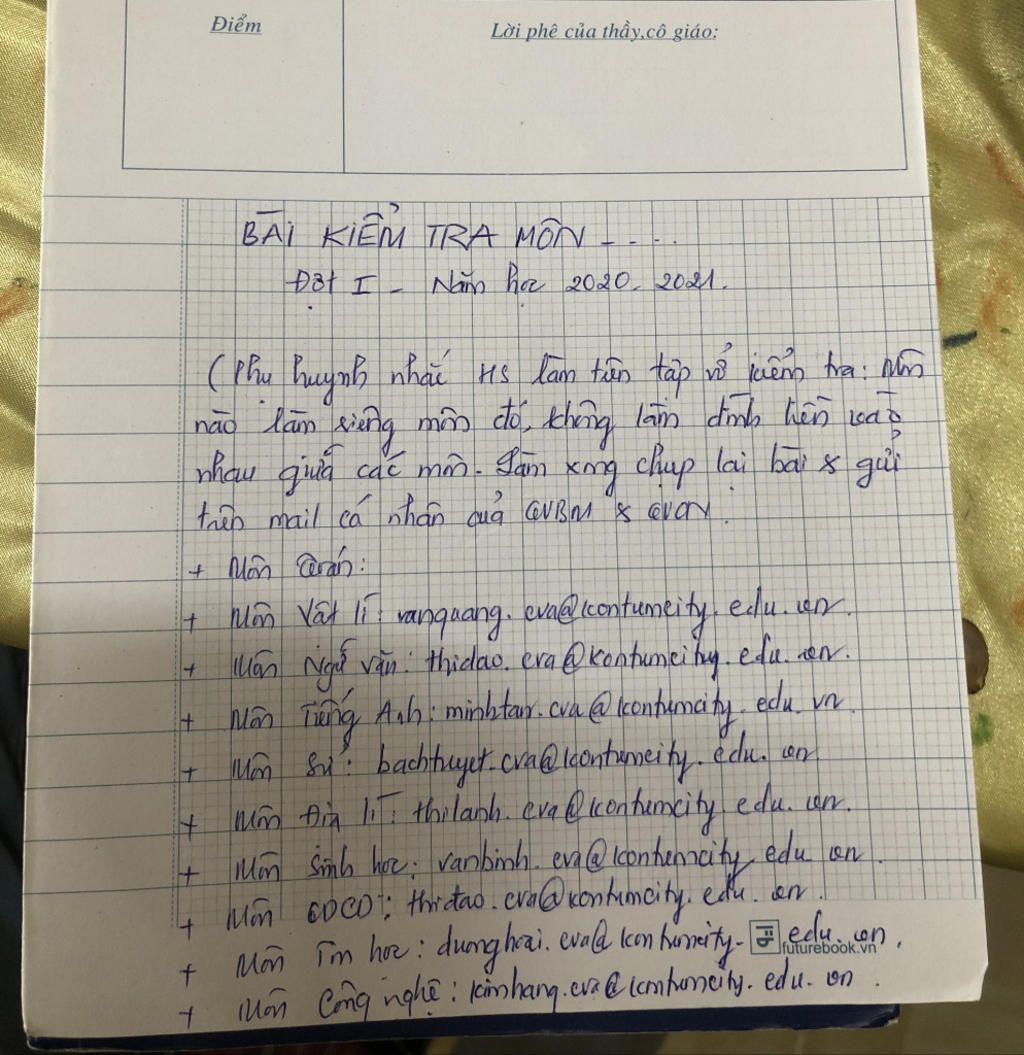 Điểm
Lời phê của thầy,cô giáo:
BÀI KIỂM TRA MÔN - . . .
Đợt I - Năm học 2020. 2021.
(Phụ huynh nhắc HS làm trên tập vở kiểm tra: Môn
nào làm riêng môn đó, không làm dính liền vào
nhau giữa các môn. Làm xong chụp lại bài & gửi
trên mail cá nhân của GVBM & GVCN.
+ Môn Toán:
+ Môn Vật lí: vanquang.cva@kontumcity.edu.vn.
+ Môn Ngữ văn: thidao.cva@kontumcity.edu.vn.
+ Môn Tiếng Anh: minhtan.cva@kontumcity.edu.vn.
+ Môn Sử: bachtuyet.cva@kontumcity.edu.vn
+ Môn Địa lí: thilanh.cva@kontumcity.edu.vn.
+ Môn Sinh học: vanbinh.cva@kontumcity.edu.vn.
+ Môn GDCD: thidao.cva@kontumcity.edu.vn.
+ Môn Tin học: duonghoai.cva@kontumcity.edu.vn.
futurebook.vn
+ Môn Công nghệ: kimhang.cva@kontumcity.edu.vn.